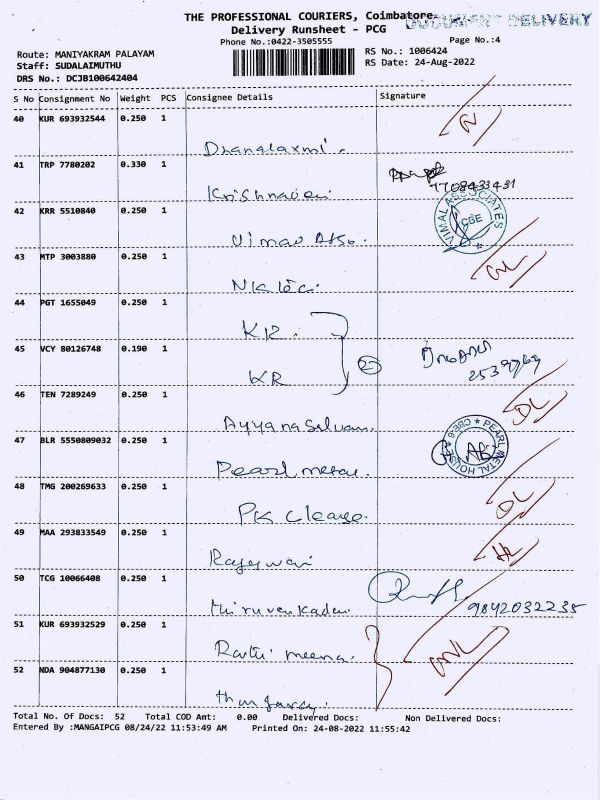 THE PROFESSIONAL COURIERS, Coimbatore.
DOCUMENT DELIVERY
Delivery Runsheet - PCG
Phone No.:0422-3505555
Page No.:4
Route: MANIYAKRAM PALAYAM
RS No.: 1006424
Staff: SUDALAIMUTHU
RS Date: 24-Aug-2022
DRS No.: DCJB100642404
S No Consignment No Weight PCS Consignee Details Signature
40 KUR 693932544 0.250 1
Dhanalaxmi
41 TRP 7780202 0.330 1
7708433431
Krishnaveni
42 KRR 5510840 0.250 1
VIMAL ASSOCIATES CBE
Vimal Asso.
43 MTP 3003880 0.250 1
NK loc.
44 PGT 1655049 0.250 1
KR.
45 VCY 80126748 0.190 1
2
KR
46 TEN 7289249 0.250 1
DL
Ayyanaselvam.
47 BLR 5550809032 0.250 1
PEARL METAL HOUSE CBE-6
Pearl metal.
48 TMG 200269633 0.250 1
DL
PK Cleane.
49 MAA 293833549 0.250 1
Rajeswari
50 TCG 10066408 0.250 1
9842032235
Thiruvenkadam
51 KUR 693932529 0.250 1
Rathi meena.
52 NDA 904877130 0.250 1
Thangaraj.
Total No. Of Docs: 52 Total COD Amt: 0.00 Delivered Docs: Non Delivered Docs:
Entered By :MANGAIPCG 08/24/22 11:53:49 AM Printed On: 24-08-2022 11:55:42